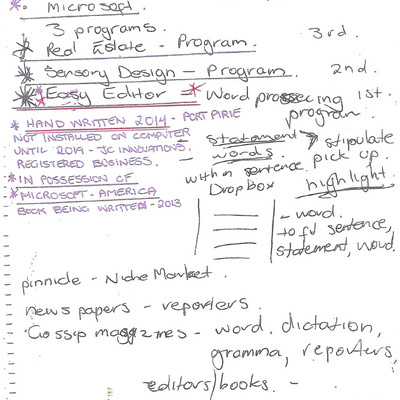 * Microsoft.
3 programs.
* Real Estate - Program. 3rd.
* Sensory Design - Program. 2nd.
* Easy Editor = * Word processing 1st.
program.
* HAND WRITTEN 2014 - PORT PIRIE
NOT INSTALLED ON COMPUTER
UNTIL 2019 - JC INNOVATIONS.
REGISTERED BUSINESS.
* IN POSSESSION OF
* MICROSOFT - AMERICA
BOOK BEING WRITTEN - 2013
- statement → stipulate
- words. pick up.
within sentence
Dropbox highlight
- word.
to fd sentence,
statement, word.
pinnicle - Niche Market.
news papers - reporters.
Gossip magzines - word. dictation,
gramma, reporters,
editors/books. -